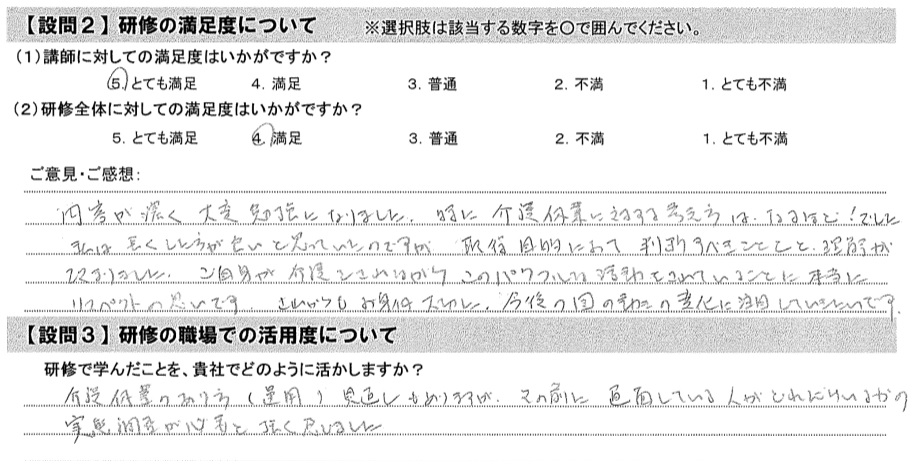 【設問2】研修の満足度について ※選択肢は該当する数字を〇で囲んでください。
(1)講師に対しての満足度はいかがですか?
5. とても満足 4. 満足 3. 普通 2. 不満 1. とても不満
(2)研修全体に対しての満足度はいかがですか?
5. とても満足 4. 満足 3. 普通 2. 不満 1. とても不満
ご意見・ご感想:
内容が濃く 大変勉強になりました。特に 介護休業に対する考え方は、なるほど!でした
私は長くした方が良いと思っていたのですが 取得目的にあって 判断すべきことと、理解が
深まりました。ご自身が 介護をされながら このパワフルな活動をされていることに 本当に
リスペクトの思いです。これからもお身体大切に。今後の国の動きの変化に注目していきたいです。
【設問3】研修の職場での活用度について
研修で学んだことを、貴社でどのように活かしますか?
介護休業のあり方(運用)見直しもありますが、その前に 直面している人がどれだけいるかの
実態調査が必要と強く思いました